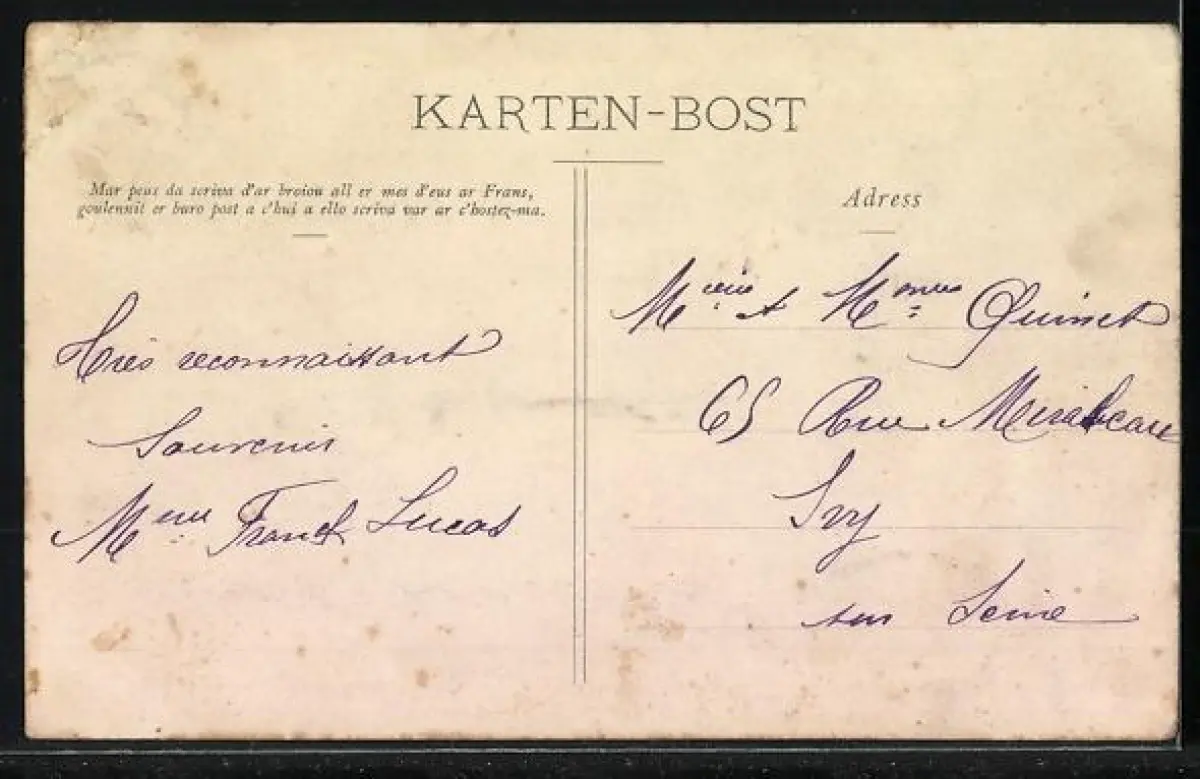 KARTEN-BOST
Mar peus da scriva d'ar broiou all er mes d'eus ar Frans,
goulennit er buro post a c'hui a ello scriva var ar c'hostez-ma.
Très reconnaissant
Souvenir
Mme Franck Lucas
Adress
et Quinet
65 Rue Mirabeau
Ivy
sur Seine